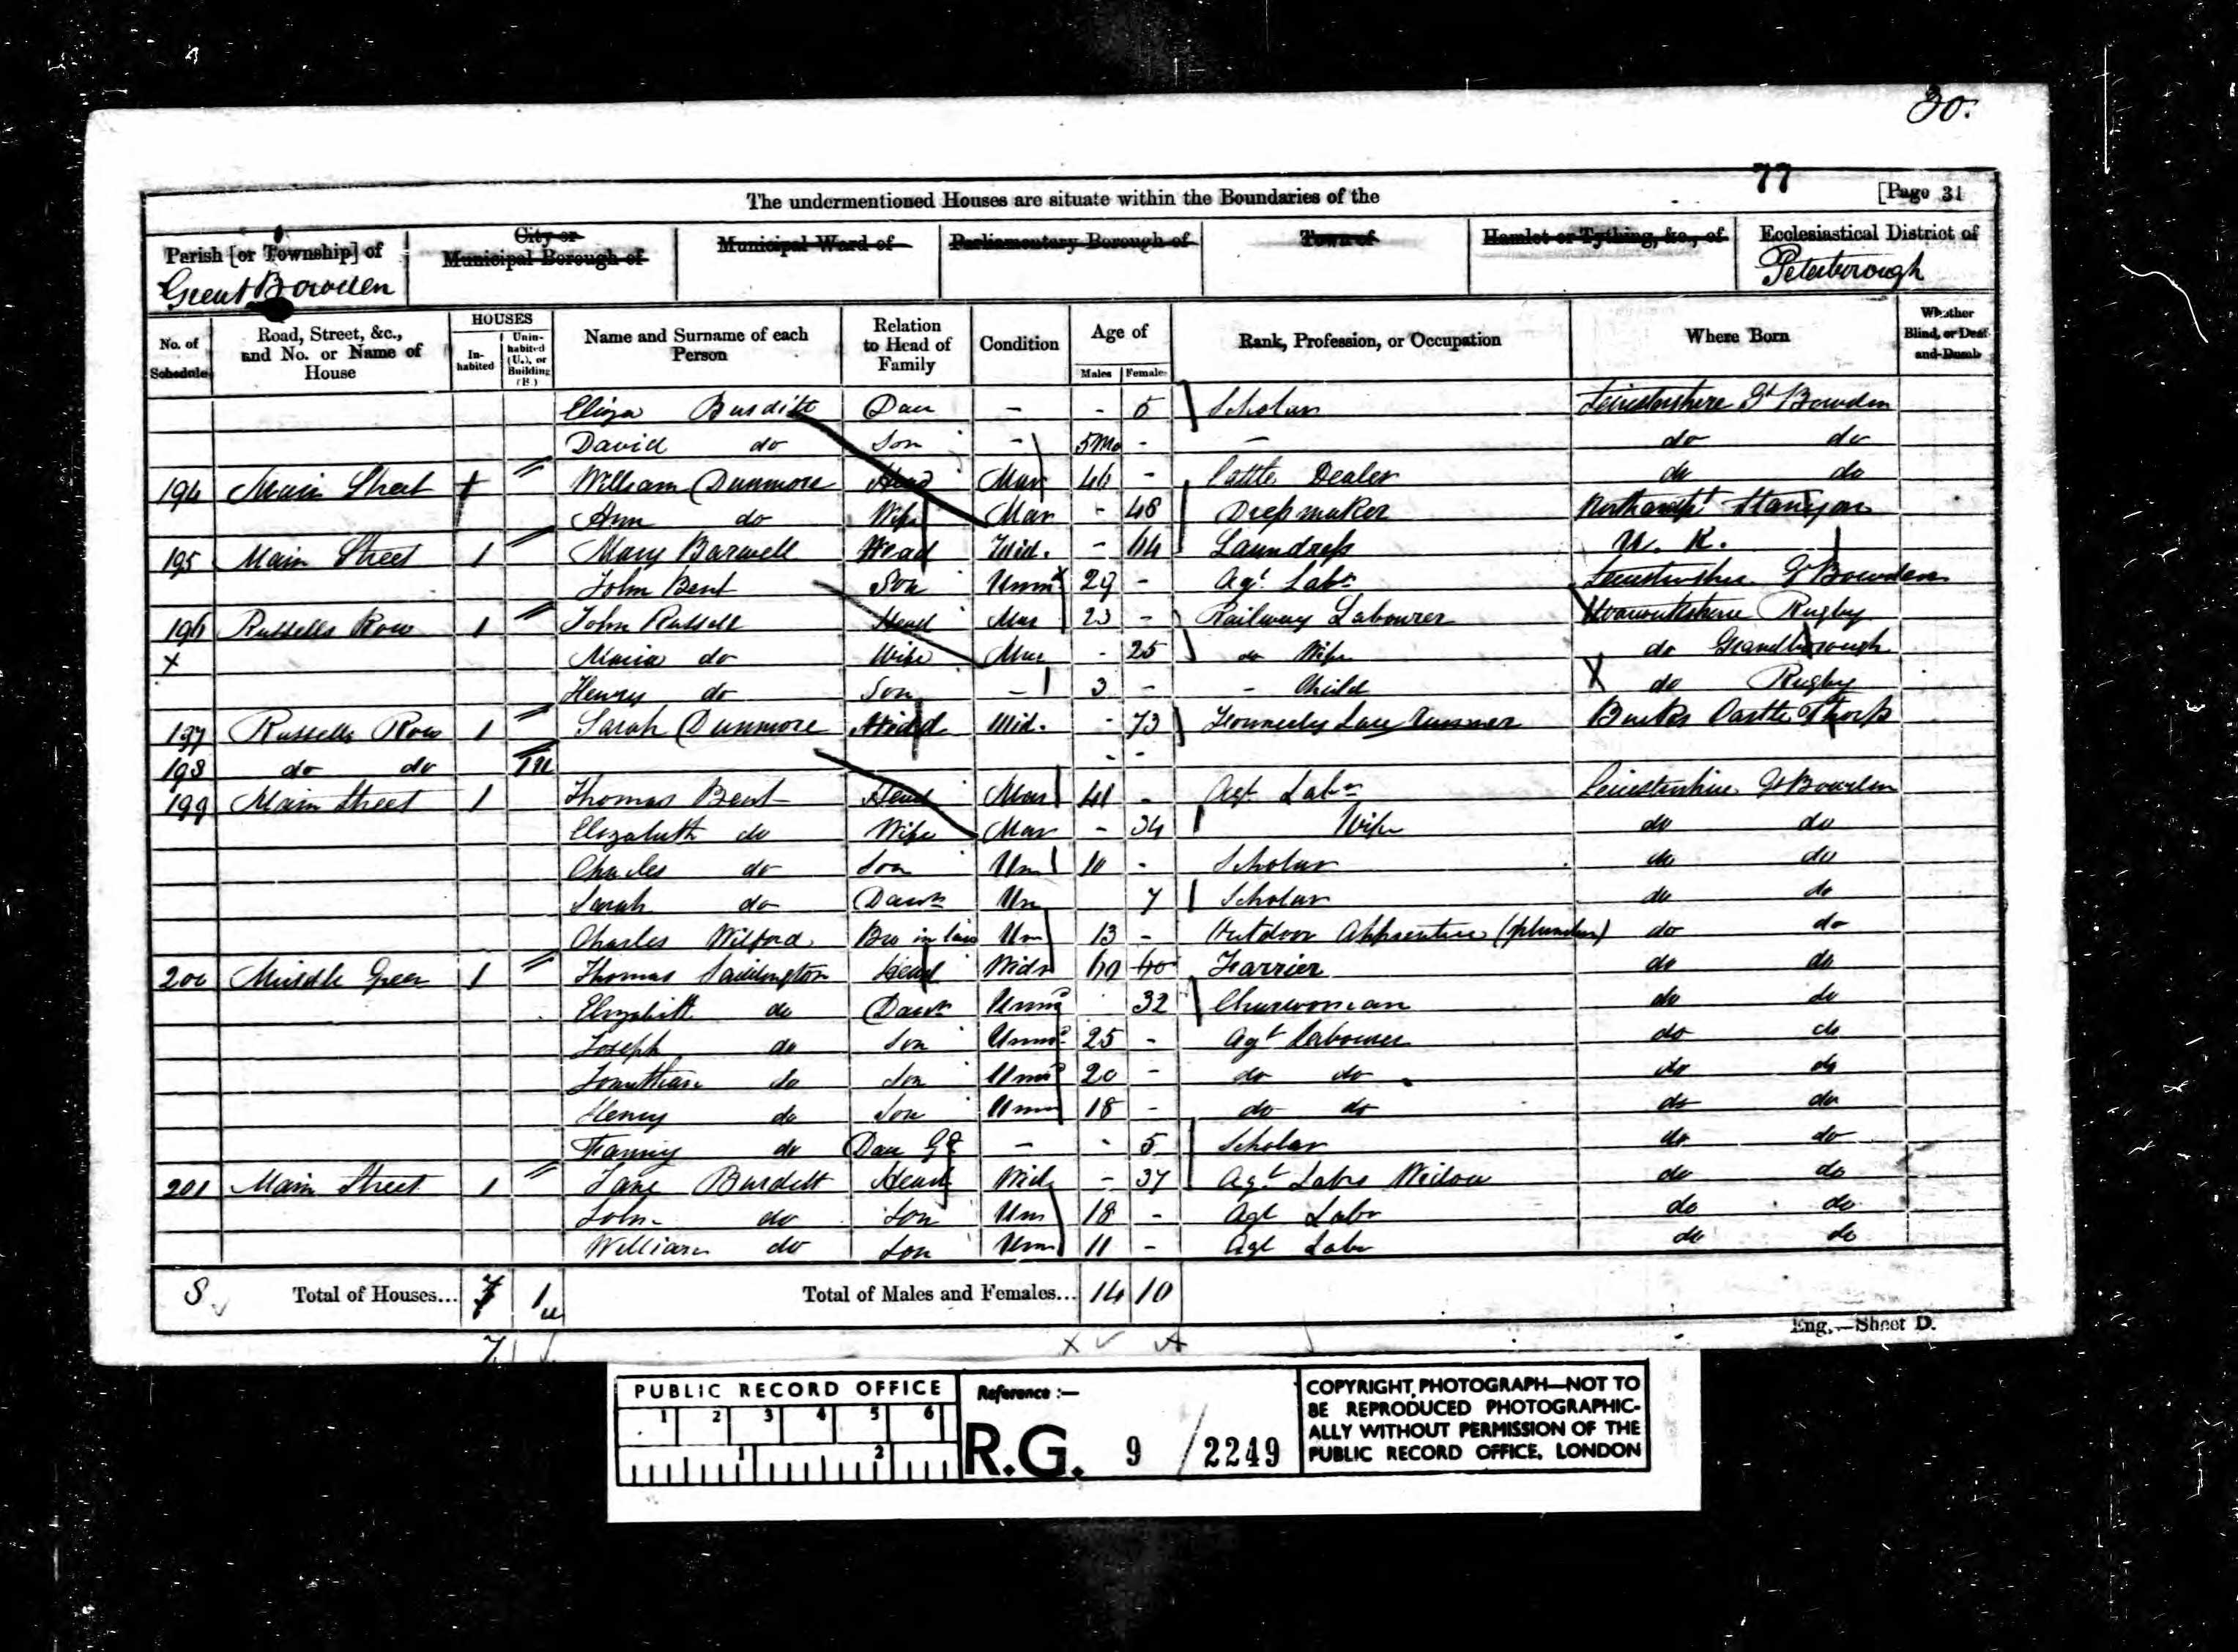 30.
77
The undermentioned Houses are situate within the Boundaries of the [Page 31
Parish [or Township] of City or Municipal Borough of Municipal Ward of Parliamentary Borough of Town of Hamlet or Tything, &c., of Ecclesiastical District of
Great Bowden Peterborough
No. of Schedule Road, Street, &c., and No. or Name of House HOUSES In-habited Unin-habited (U.), or Building (B.) Name and Surname of each Person Relation to Head of Family Condition Age of Males Females Rank, Profession, or Occupation Where Born Whether Blind, or Deaf-and-Dumb
Eliza Burditt Dau - - 5 Scholar Leicestershire Gt Bowden
David do Son - 5Mo - - do do
194 Main Street 1 William Dunmore Head Mar 46 - Cattle Dealer do do
Ann do Wife Mar - 48 Dressmaker Northampt
195 Main Street 1 Mary Barwell Head Wid. - 64 Laundress N. K.
John Bent Son Unm 29 - Agl Labr Leicestershire Gt Bowden
196 Russells Row 1 John Russell Head Mar 23 - Railway Labourer Warwickshire Rugby
X Maria do Wife Mar - 25 do Wife do Grandborough
Henry do Son - 3 - - Child do Rugby
197 Russells Row 1 Sarah Dunmore Head Wid. - 73 Formerly Lace Runner Bucks Castle Thorp
198 do do 1U - -
199 Main Street 1 Thomas Bent Head Mar 41 - Agl Labr Leicestershire Gt Bowden
Elizabeth do Wife Mar - 34 Wife do do
Charles do Son Un 10 - Scholar do do
Sarah do Daur Un 7 Scholar do do
Charles Wilford Bro in law Un 13 - Outdoor Apprentice (plumber) do do
200 Middle Green 1 Thomas Saddington Head Widr 60 60 Farrier do do
Elizabeth do Daur Unmd 32 Charwoman do do
Joseph do Son Unmd 25 - Agl Labourer do do
Jonathan do Son Unmd 20 - do do do do
Henry do Son Unm 18 - do do do do
Fanny do Dau Gd - - 5 Scholar do do
201 Main Street 1 Jane Burditt Head Wid - 37 Agl Labrs Widow do do
John do Son Un 18 - Agl Labr do do
William do Son Unm 11 - Agl Labr do do
8 Total of Houses... 7 1u Total of Males and Females... 14 10
7
Eng.—Sheet D.
PUBLIC RECORD OFFICE
1 2 3 4 5 6
1 2
Reference :—
R.G. 9 / 2249
COPYRIGHT PHOTOGRAPH—NOT TO
BE REPRODUCED PHOTOGRAPHIC-
ALLY WITHOUT PERMISSION OF THE
PUBLIC RECORD OFFICE, LONDON